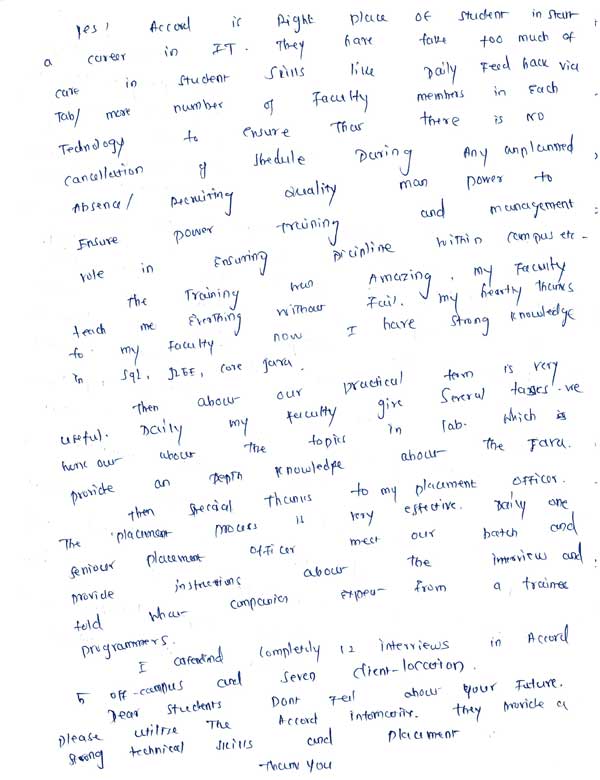 Yes, Accord is Right place of student in start
a career in IT. They have take too much of
care in student skills like Daily Feed back via
Tab/ more number of Faculty members in Each
Technology to ensure That there is NO
cancellation of shedule During Any anplanned,
Absence/ Recruiting quality man power to
Ensure power training and management
role in Ensuring Dicipline within campus etc-
The Training was Amazing. my Faculty
teach me Everthing without Fail. my heartly thanks
to my Faculty. now I have strong knowledge
in Sql, J2EE, core java.
Then about our practical term is very
useful. Daily my Faculty give Several tasges. we
hone our about the topics in lab. which is
provide an Depth knowledge about the Java.
Then special Thanks to my placement officer.
The placment process is very effective. Daily one
seniour placement officer meet our batch and
provide instructions about the interview and
told what companies expeu- from a trainee
programmers.
I completely 12 interviews in Accord
5 off-campus and seven client-location.
Dear students Dont Feel about your Future.
please utilise The Accord They provide a
strong technical skills and placement
Thank you